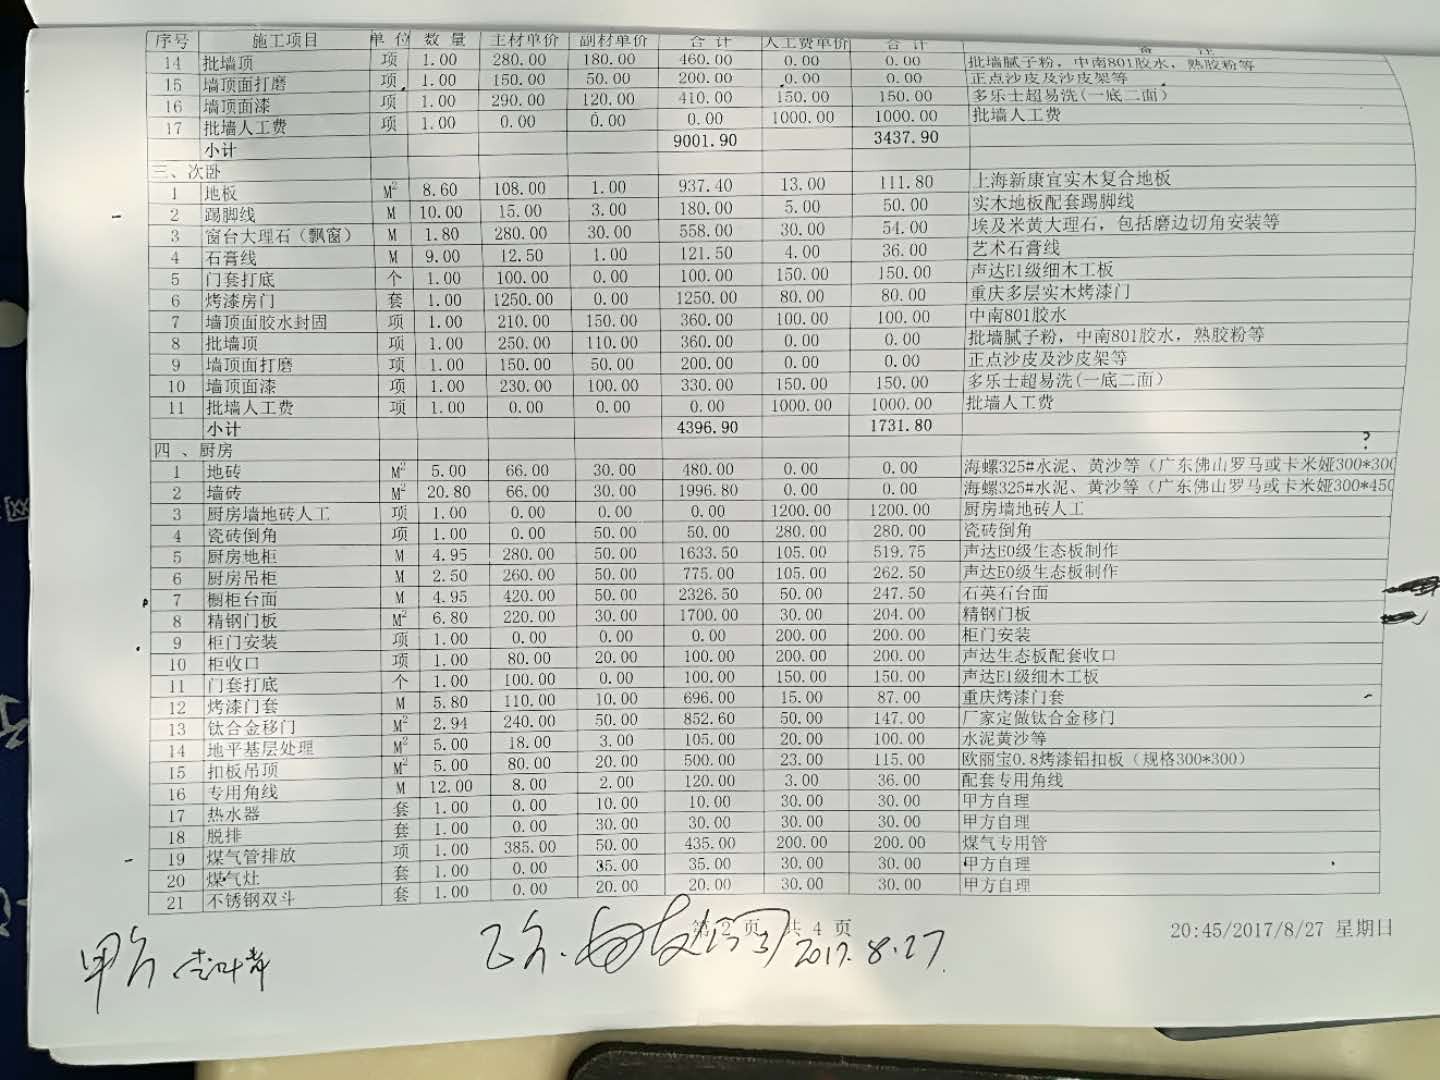 序号 施工项目 单 位 数 量 主材单价 副材单价 合 计 人工费单价 合 计 备 注
14 批墙顶 项 1.00 280.00 180.00 460.00 0.00 0.00 批墙腻子粉，中南801胶水，熟胶粉等
15 墙顶面打磨 项 1.00 150.00 50.00 200.00 0.00 0.00 正点沙皮及沙皮架等
16 墙顶面漆 项 1.00 290.00 120.00 410.00 150.00 150.00 多乐士超易洗(一底二面）
17 批墙人工费 项 1.00 0.00 0.00 0.00 1000.00 1000.00 批墙人工费
小计 9001.90 3437.90
三、次卧
1 地板 M² 8.60 108.00 1.00 937.40 13.00 111.80 上海新康宜实木复合地板
2 踢脚线 M 10.00 15.00 3.00 180.00 5.00 50.00 实木地板配套踢脚线
3 窗台大理石（飘窗） M 1.80 280.00 30.00 558.00 30.00 54.00 埃及米黄大理石，包括磨边切角安装等
4 石膏线 M 9.00 12.50 1.00 121.50 4.00 36.00 艺术石膏线
5 门套打底 个 1.00 100.00 0.00 100.00 150.00 150.00 声达E1级细木工板
6 烤漆房门 套 1.00 1250.00 0.00 1250.00 80.00 80.00 重庆多层实木烤漆门
7 墙顶面胶水封固 项 1.00 210.00 150.00 360.00 100.00 100.00 中南801胶水
8 批墙顶 项 1.00 250.00 110.00 360.00 0.00 0.00 批墙腻子粉，中南801胶水，熟胶粉等
9 墙顶面打磨 项 1.00 150.00 50.00 200.00 0.00 0.00 正点沙皮及沙皮架等
10 墙顶面漆 项 1.00 230.00 100.00 330.00 150.00 150.00 多乐士超易洗(一底二面）
11 批墙人工费 项 1.00 0.00 0.00 0.00 1000.00 1000.00 批墙人工费
小计 4396.90 1731.80
四 、厨房
1 地砖 M² 5.00 66.00 30.00 480.00 0.00 0.00 海螺325#水泥、黄沙等（广东佛山罗马或卡米娅300*300
2 墙砖 M² 20.80 66.00 30.00 1996.80 0.00 0.00 海螺325#水泥、黄沙等（广东佛山罗马或卡米娅300*450
3 厨房墙地砖人工 项 1.00 0.00 0.00 0.00 1200.00 1200.00 厨房墙地砖人工
4 瓷砖倒角 项 1.00 0.00 50.00 50.00 280.00 280.00 瓷砖倒角
5 厨房地柜 M 4.95 280.00 50.00 1633.50 105.00 519.75 声达E0级生态板制作
6 厨房吊柜 M 2.50 260.00 50.00 775.00 105.00 262.50 声达E0级生态板制作
7 橱柜台面 M 4.95 420.00 50.00 2326.50 50.00 247.50 石英石台面
8 精钢门板 M² 6.80 220.00 30.00 1700.00 30.00 204.00 精钢门板
9 柜门安装 项 1.00 0.00 0.00 0.00 200.00 200.00 柜门安装
10 柜收口 项 1.00 80.00 20.00 100.00 200.00 200.00 声达生态板配套收口
11 门套打底 个 1.00 100.00 0.00 100.00 150.00 150.00 声达E1级细木工板
12 烤漆门套 M 5.80 110.00 10.00 696.00 15.00 87.00 重庆烤漆门套
13 钛合金移门 M² 2.94 240.00 50.00 852.60 50.00 147.00 厂家定做钛合金移门
14 地平基层处理 M² 5.00 18.00 3.00 105.00 20.00 100.00 水泥黄沙等
15 扣板吊顶 M² 5.00 80.00 20.00 500.00 23.00 115.00 欧丽宝0.8烤漆铝扣板（规格300*300）
16 专用角线 M 12.00 8.00 2.00 120.00 3.00 36.00 配套专用角线
17 热水器 套 1.00 0.00 10.00 10.00 30.00 30.00 甲方自理
18 脱排 套 1.00 0.00 30.00 30.00 30.00 30.00 甲方自理
19 煤气管排放 项 1.00 385.00 50.00 435.00 200.00 200.00 煤气专用管
20 煤气灶 套 1.00 0.00 35.00 35.00 30.00 30.00 甲方自理
21 不锈钢双斗 套 1.00 0.00 20.00 20.00 30.00 30.00 甲方自理
第 2 页 共 4 页 20:45/2017/8/27 星期日
甲方 乙方 2017.8.27